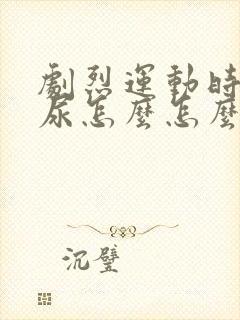 劇烈運動時
尿怎麼怎麼
沉璧